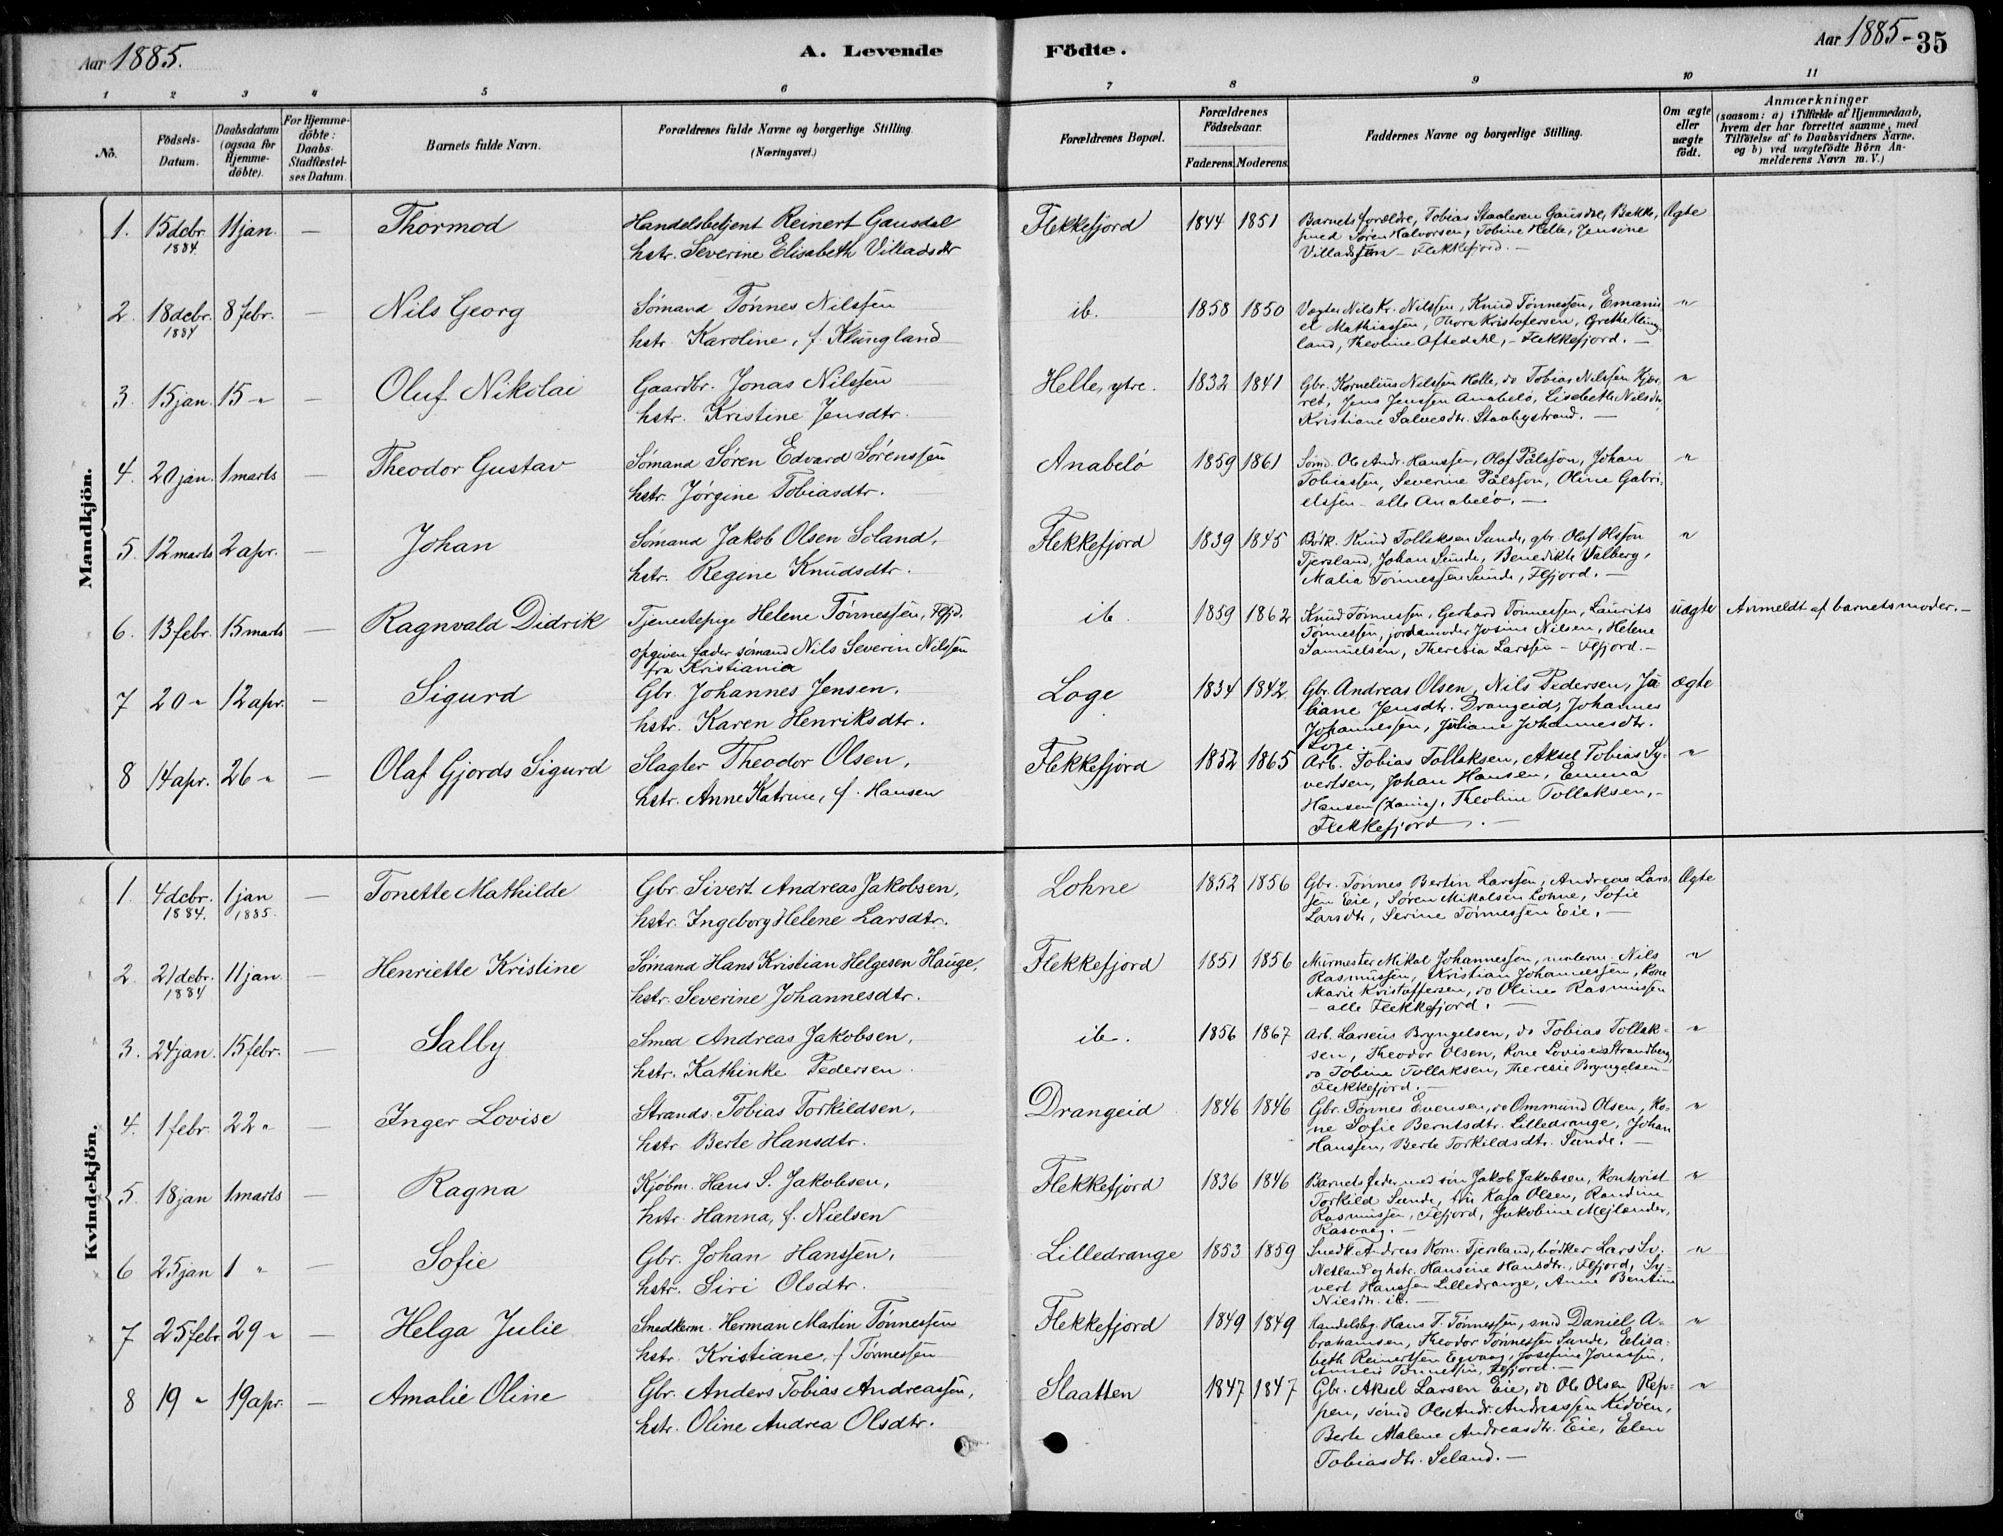 Aar 1885.
A. Levende
Födte.
Aar 1885-
35
1 2 3 4 5 6 7 8 9 10 11
No.
Födsels-Datum.
Daabsdatum (ogsaa for Hjemme-döbte).
For Hjemme-döbte: Daabs-Stadfæstel-ses Datum.
Barnets fulde Navn.
Forældrenes fulde Navne og borgerlige Stilling.
(Næringsvei.)
Forældrenes Bopæl.
Forældrenes Födselsaar.
Faderens. Moderens.
Faddernes Navne og borgerlige Stilling.
Om ægte eller uægte födt.
Anmærkninger
(saasom: a) i Tilfælde af Hjemmedaab,
hvem der har forrettet samme, med
Tilföielse af to Daabsvidners Navne,
og b) ved uægtefödte Börn An-
melderens Navn m. V.)
Mandkjön.
1. 15 dcbr. 1884. 11 jan. — Thormod
Handelsbetjent Reinert Gausdal
hstr. Severine Elisabeth Villadsdtr
Flekkefjord 1844 1851
Barnets forældre, Tobias Staalesen Gausdal, Bakke,
smed Søren Halvorsen, Tobine Helle, Jensine
Villadssen — Flekkefjord. —
Ægte
2. 18 dcbr. 1884 8 febr. — Nils Georg
Sømand Tønnes Nilssen
hstr. Karoline, f. Klungland
ib. 1858 1850
Vægter Nils Kr. Nilssen, Knud Tønnessen, Emanu
el Mathiassen, Thora Kristofersen, Grethe Klung-
land, Theoline Aftedahl, - Flekkefjord. —
"
3. 15 jan. 15 " — Oluf Nikolai
Gaardbr. Jonas Nilssen
hstr. Kristine Jensdtr.
Helle, ytre. 1832 1841
Gbr. Kornelius Nilssen Helle, do Tobias Nilssen
Jens Jenssen Anabelø, Lisebeth Nilsdtr,
Kristiane Salvesdtr. Staalystrand. —
"
4. 20 jan. 1 marts — Theodor Gustav
Sømand Søren Edvard Sørenssen
hstr. Jørgine Tobiasdtr.
Anabelø 1859 1861
Sømd. Ole Andr. Hanssen, Olaf Pålsson, Johan
Tobiassen, Severine Pålsson, Oline Gabri
elssen - alle Anabelø. —
"
5. 12 marts 2 apr. — Johan
Sømand Jakob Olsen Soland,
hstr. Regine Knudsdtr.
Flekkefjord 1839 1845
Bødk. Knud Tollaksen Sunde, gbr. Olaf
Tjersland, Johan Sunde, Benedikte Valberg,
Malia Tønnessen Sunde, Ffjord. —
"
6. 13 febr. 15 marts — Ragnvald Didrik
Tjenestepige Helene Tønnessen, Ffjd.
opgiven fader sømand Nils Severin Nilssen
fra Kristiania
ib. 1859 1862
Knud Tønnessen, Gerhard Tønnessen, Laurits
Tønnessen, jordemoder Josine Nilsen, Helene
Samuelsen, Theresia Larssen - Ffjord. —
uægte Anmeldt af barnets moder. —
7 20 " 12 apr. — Sigurd
Gbr. Johannes Jensen,
hstr. Karen Henriksdtr.
Loge 1834 1842
Gbr. Andreas Olsen, Nils Pedersen, Ja
biane Jensdtr. Drangeid, Johannes
Johannessen, Juliane Johannesdtr.
Loge.
ægte
8 14 apr. 26 " — Olaf Gjords Sigurd
Slagter Theodor Olsen,
hstr. Anne Katrine, f. Hansen
Flekkefjord 1852 1865
Arb. Tobias Tollaksen, Aksel Tobias Sy-
vertsen, Johan Hansen, Emma
Hansen, Theoline Tollaksen, -
Flekkefjord. —
"
Kvindekjön.
1. 4 dcbr. 1884. 1 jan 1885. — Tonette Mathilde
Gbr. Sivert Andreas Jakobsen,
hstr. Ingeborg Helene Larsdtr.
Lohne 1852 1856
Gbr. Tønnes Bertin Larssen, Andreas Lars-
sen Eie, Søren Mikalsen Lohne, Sofie
Larsdtr, Serine Tønnessen Eie. —
Ægte
2. 21 dcbr. 1884 11 jan. — Henriette Kristine
Sømand Hans Kristian Helgesen Hauge,
hstr. Severine Johannesdtr.
Flekkefjord 1851 1856
Murmester Mikal Johannessen, malerm. Nils
Rasmussen, Kristian Johannessen, Kone
Marie Kristoffersen, do Oline Rasmussen
— alle Flekkefjord. —
"
3. 24 jan. 15 febr. — Sally
Smed Andreas Jakobsen,
hstr. Kathinke Pedersen.
ib. 1856 1867
Arb. Larseus Bryngelsen, do Tobias Tollak-
sen, Theodor Olsen, kone Lovise Strandberg,
do Tobine Tollaksen, Theresie Bryngelsen —
Flekkefjord. —
"
4. 1 febr. 22 " — Inger Lovise
Strands. Tobias Torkildsen,
hstr Berte Hansdtr.
Drangeid 1846 1846
Gbr. Tønnes Evensen, do Ommund Olsen, Ko-
ne Sofie Berntsdtr. Lilledrange, Johan
Hanssen, Berte Torkildsdtr. Sunde. —
"
5. 18 jan 1 marts — Ragna
Kjøbm. Hans S. Jakobsen,
hstr. Hanna, f. Nielsen
Flekkefjord 1836 1846
Barnets fader med søn Jakob Jakobsen,
Torkild Sunde, fru Kaja Olsen, Randine
Rasmussen, Ffjord, Jakobine Mejlænder,
Rasvaag. —
"
6 25 jan 1 " — Sofie
Gbr. Johan Hanssen,
hstr. Siri Olsdtr.
Lilledrange 1853 1859
Snedk. Andreas Korn. Tjersland, bødker Lars Sv.
Netland og hstr. Hansine Hansdtr., Ffjord, Sy-
vert Hanssen Lilledrange, Anne Bentine
Nilsdtr. ib. —
"
7 25 febr. 29 " — Helga Julie
Snedkerm. Herman Martin Tønnessen
hstr. Kristiane, f Tønnessen
Flekkefjord 1849 1849
Handelsbg. Hans T. Tønnessen, smd Daniel A-
brahamsen, Theodor Tønnessen Sunde, Elisa-
beth Reinertsen Egvaag, Josefine Jonassen,
Tønnessen, Ffjord. —
"
8 19 " 19 apr. — Amalie Oline
Gbr. Anders Tobias Andreassen,
hstr. Oline Andrea Olsdtr.
Slaatten 1847 1847
Gbr. Aksel Larsen Eie, do Ole Olsen Rep-
pen, sømd Ole Andr. Andreassen Kidøen,
Berte Malene Andreasdtr. Eie, Elen
Tobiasdtr. Seland. —
"